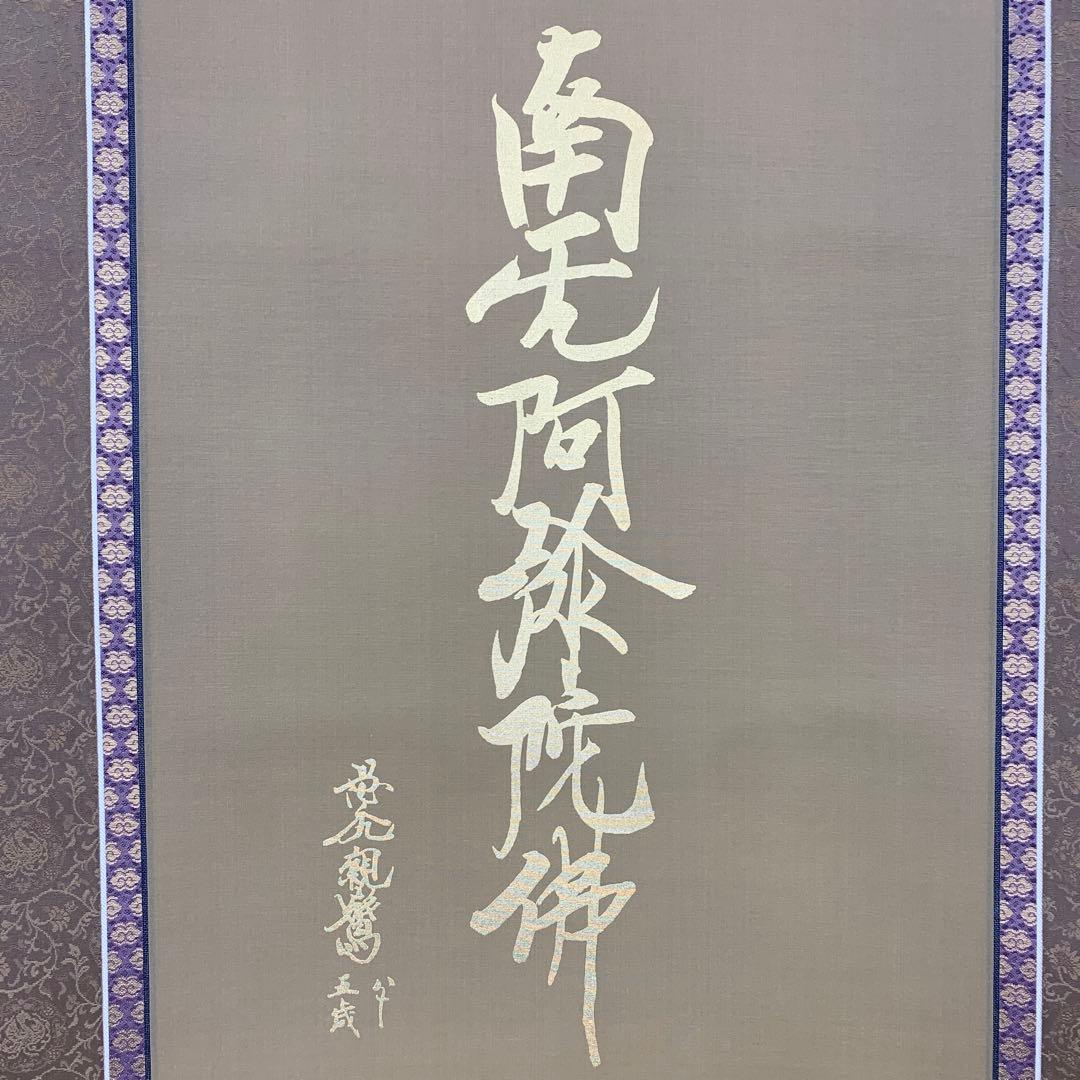 南无阿弥陀佛
愚禿親鸞
八十
五歳